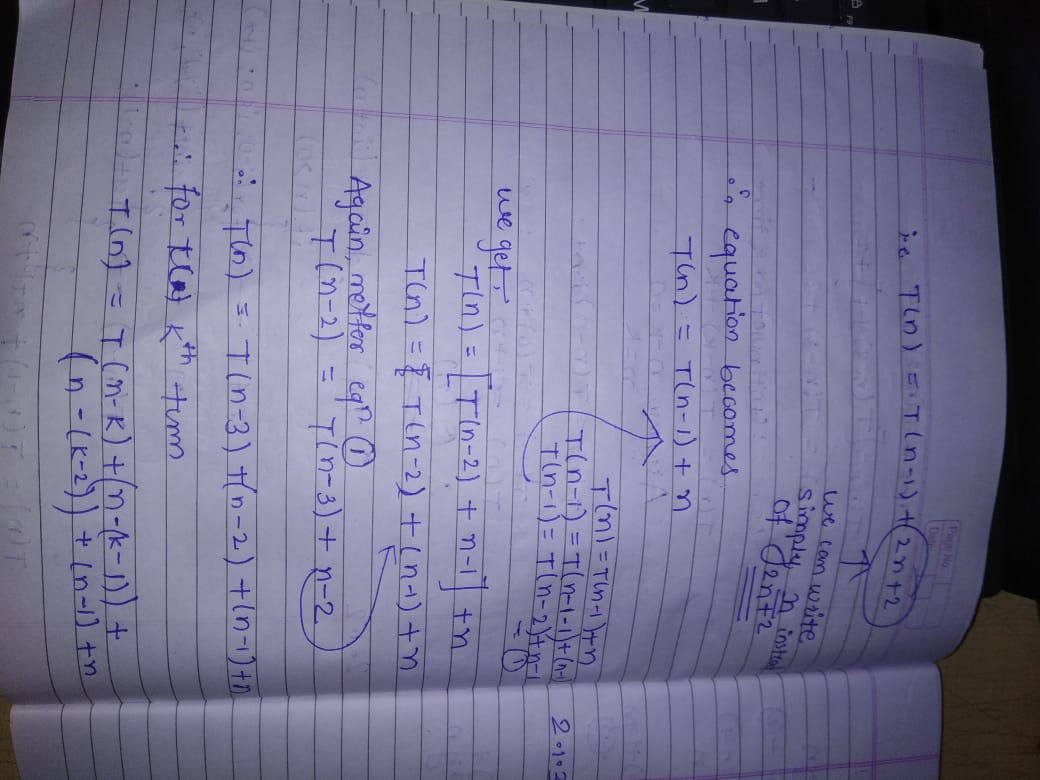 Page No
i.e. T(n) = T(n-1) + 2n+2
we can write
simply n instea
of 2n+2
∴ equation becomes
T(n) = T(n-1) + n
T(n) = T(n-1)+n
T(n-1) = T(n-1-1)+(n-1)
T(n-1) = T(n-2)+n-1
= ①
we get,
T(n) = [T(n-2) + n-1] + n
T(n) = T(n-2) + (n-1) + n
Again, eqⁿ ①
T(n-2) = T(n-3) + n-2
∴ T(n) = T(n-3) + (n-2) + (n-1) + n
for kth term
T(n) = T(n-k) + (n-(k-1)) +
(n-(k-2)) + (n-1) + n